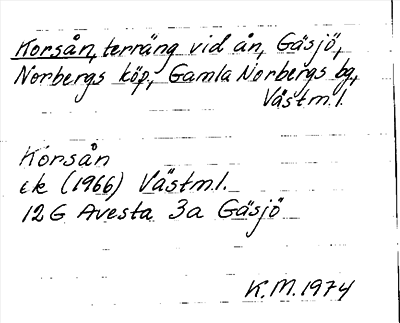 Korsån, terräng vid ån, Gäsjö,
Norbergs köp, Gamla Norbergs bg,
Västm.l.
Korsån
ek (1966) Västm.l.
12G Avesta 3a Gäsjö
K.M. 1974